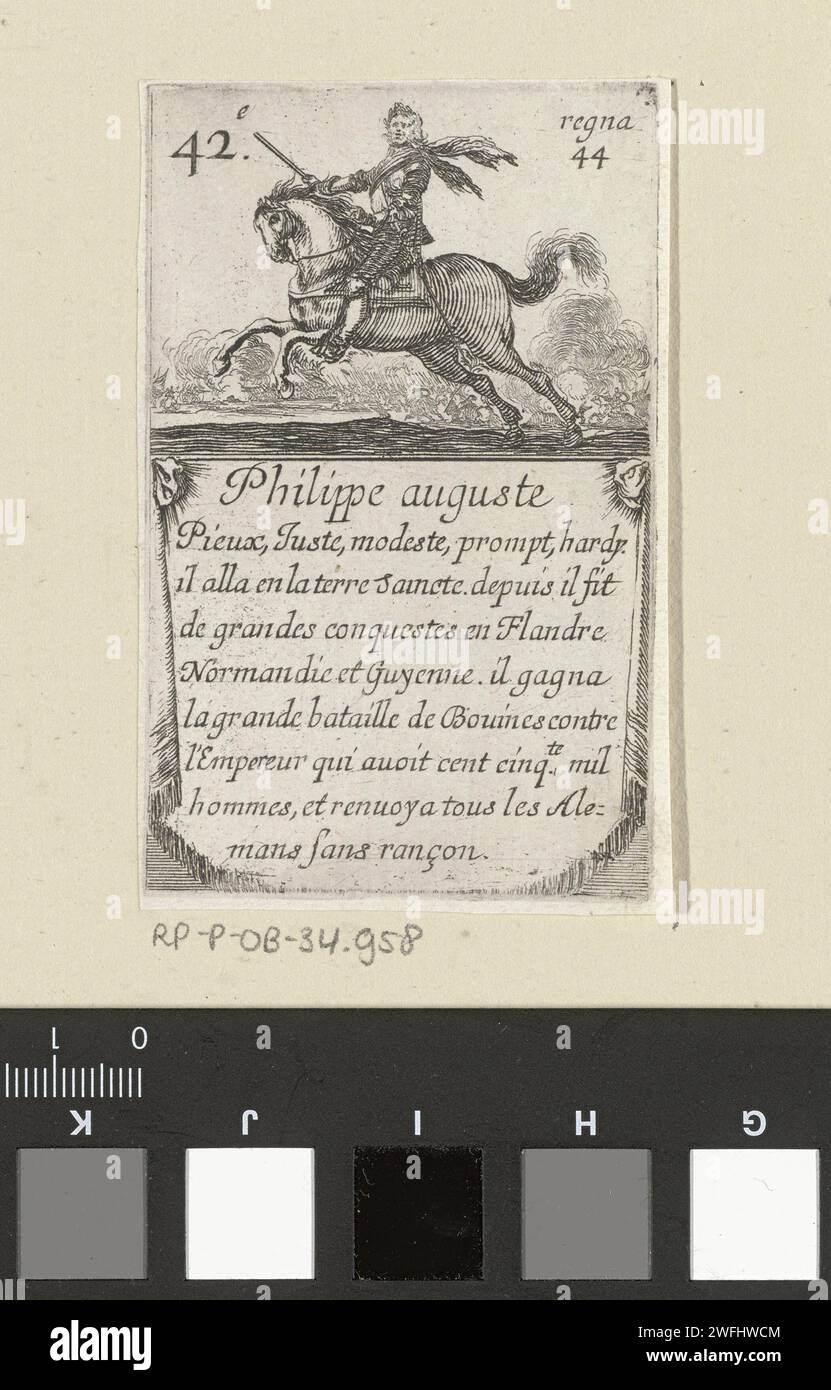 42.e
regna
44
Philippe auguste
Pieux, Juste, modeste, prompt, hardy.
il alla en la terre Saincte. depuis il fit
de grandes conquestes en Flandre
Normandie et Guyenne. il gagna
la grande bataille de Bouines contre
l'Empereur qui auoit cent cinq.te mil
hommes, et renuoya tous les Ale=
mans sans rançon.
RP-P-OB-34.958
1 0
K J I H G
alamy
Image ID: 2WFHWCM
www.alamy.com